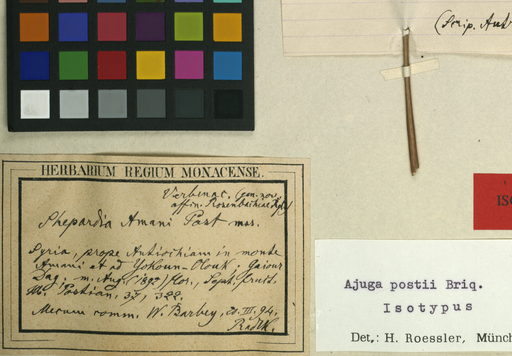 (Scrip. Aut
HERBARIUM REGIUM MONACENSE.
Verbenac. Gen. nov.
affin. Rosenbachiae Rgl.)
Shepardia Amani Post mss.
Syria, prope Antiochiam in monte
Amani et ad
Dag. m. Aug. (1892) flor., Sept. fruct.
322.
Mecum comm. W. Barbey, 20. III. 94.
Radlk.
ISO
Ajuga postii Briq.
Isotypus
Det.: H. Roessler, Münch